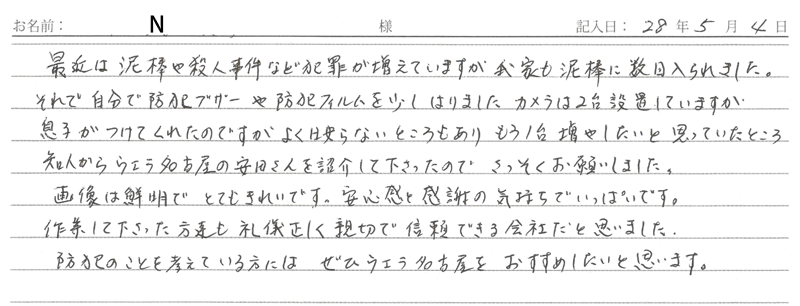 お名前： N 様 記入日： 28 年 5 月 4 日
最近は泥棒や殺人事件など犯罪が増えていますが我家も泥棒に数回入られました。
それで自分で防犯ブザーや防犯フィルムを少しはりました カメラは2台設置していますが
息子がつけてくれたのですが よくは映らないところもあり もう1台増やしたいと思っていたところ
知人からウェラ名古屋の安田さんを紹介して下さったので さっそくお願いしました。
画像は鮮明で とてもきれいです。安心感と感謝の気持ちでいっぱいです。
作業して下さった方達も 礼儀正しく親切で信頼できる会社だと思いました.
防犯のことを考えている方には ぜひウェラ名古屋を おすすめしたいと思います。